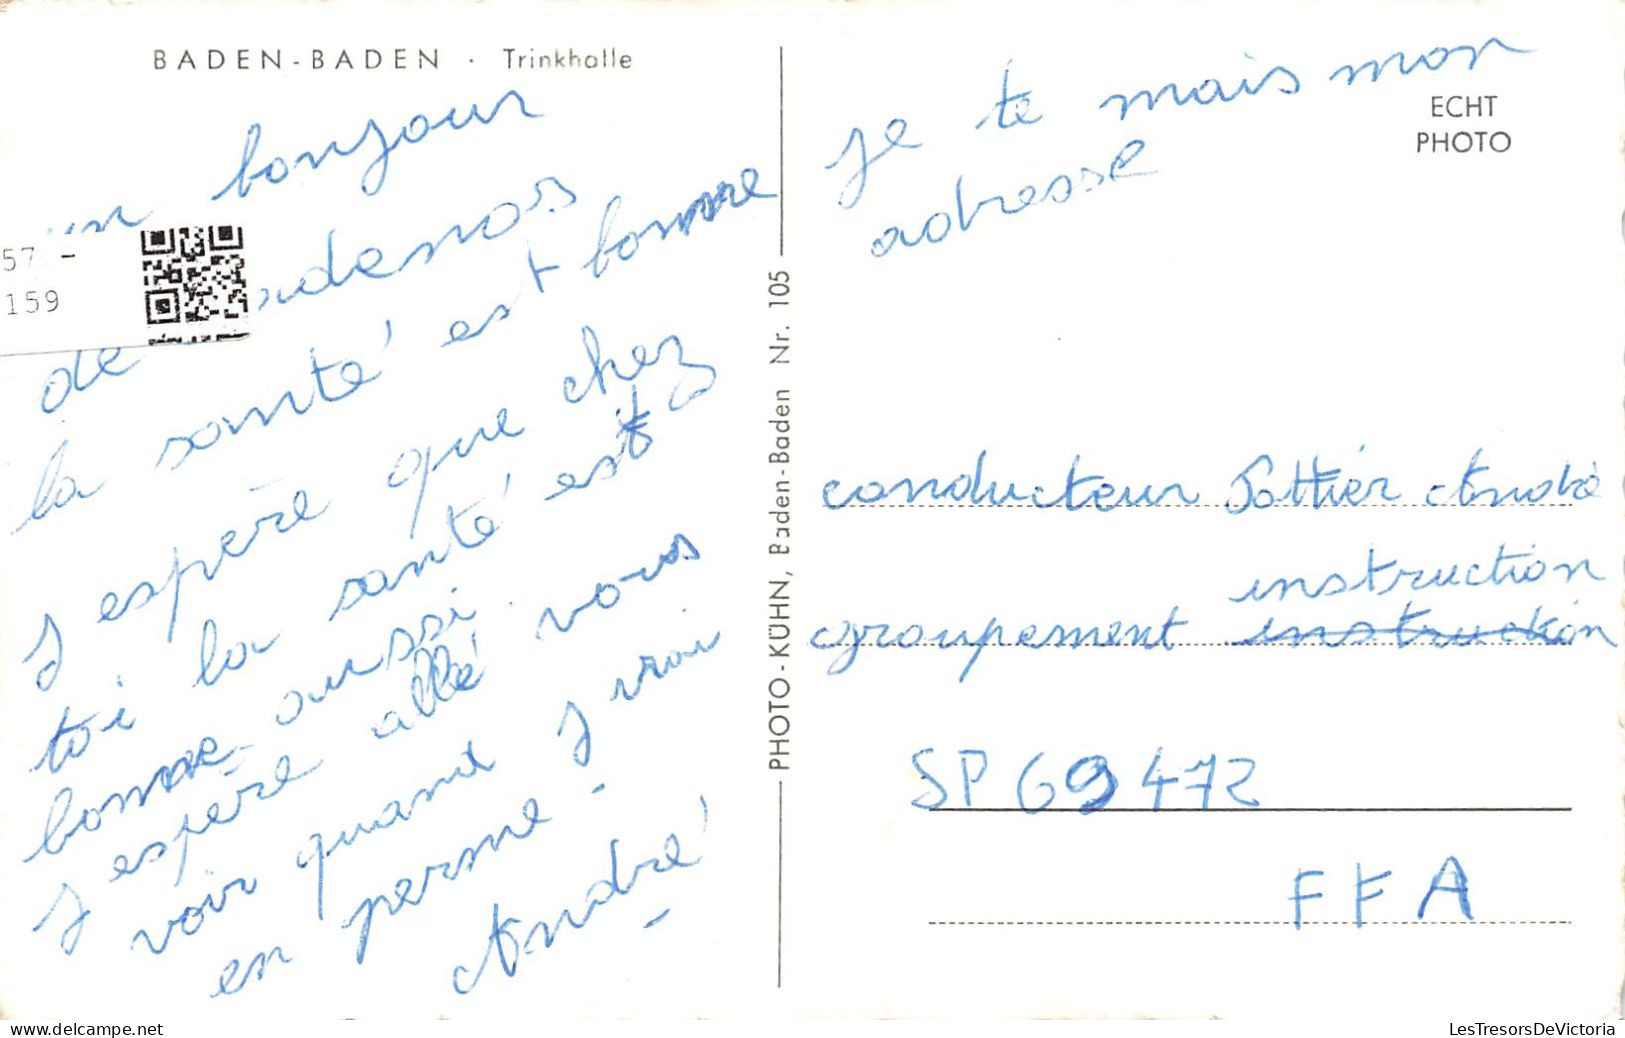 BADEN-BADEN · Trinkhalle
un bonjour
de
la santé est bonne
J espère que chez
toi la santé est
bonne aussi
J espère allé vous
voir quand J vrai
en perme.
André
57 -
159
PHOTO-KÜHN, Baden-Baden Nr. 105
Je te mais mon
adresse
ECHT
PHOTO
conducteur Pottier André
instruction
groupement instruction
SP 69472
FFA
www.delcampe.net
LesTresorsDeVictoria